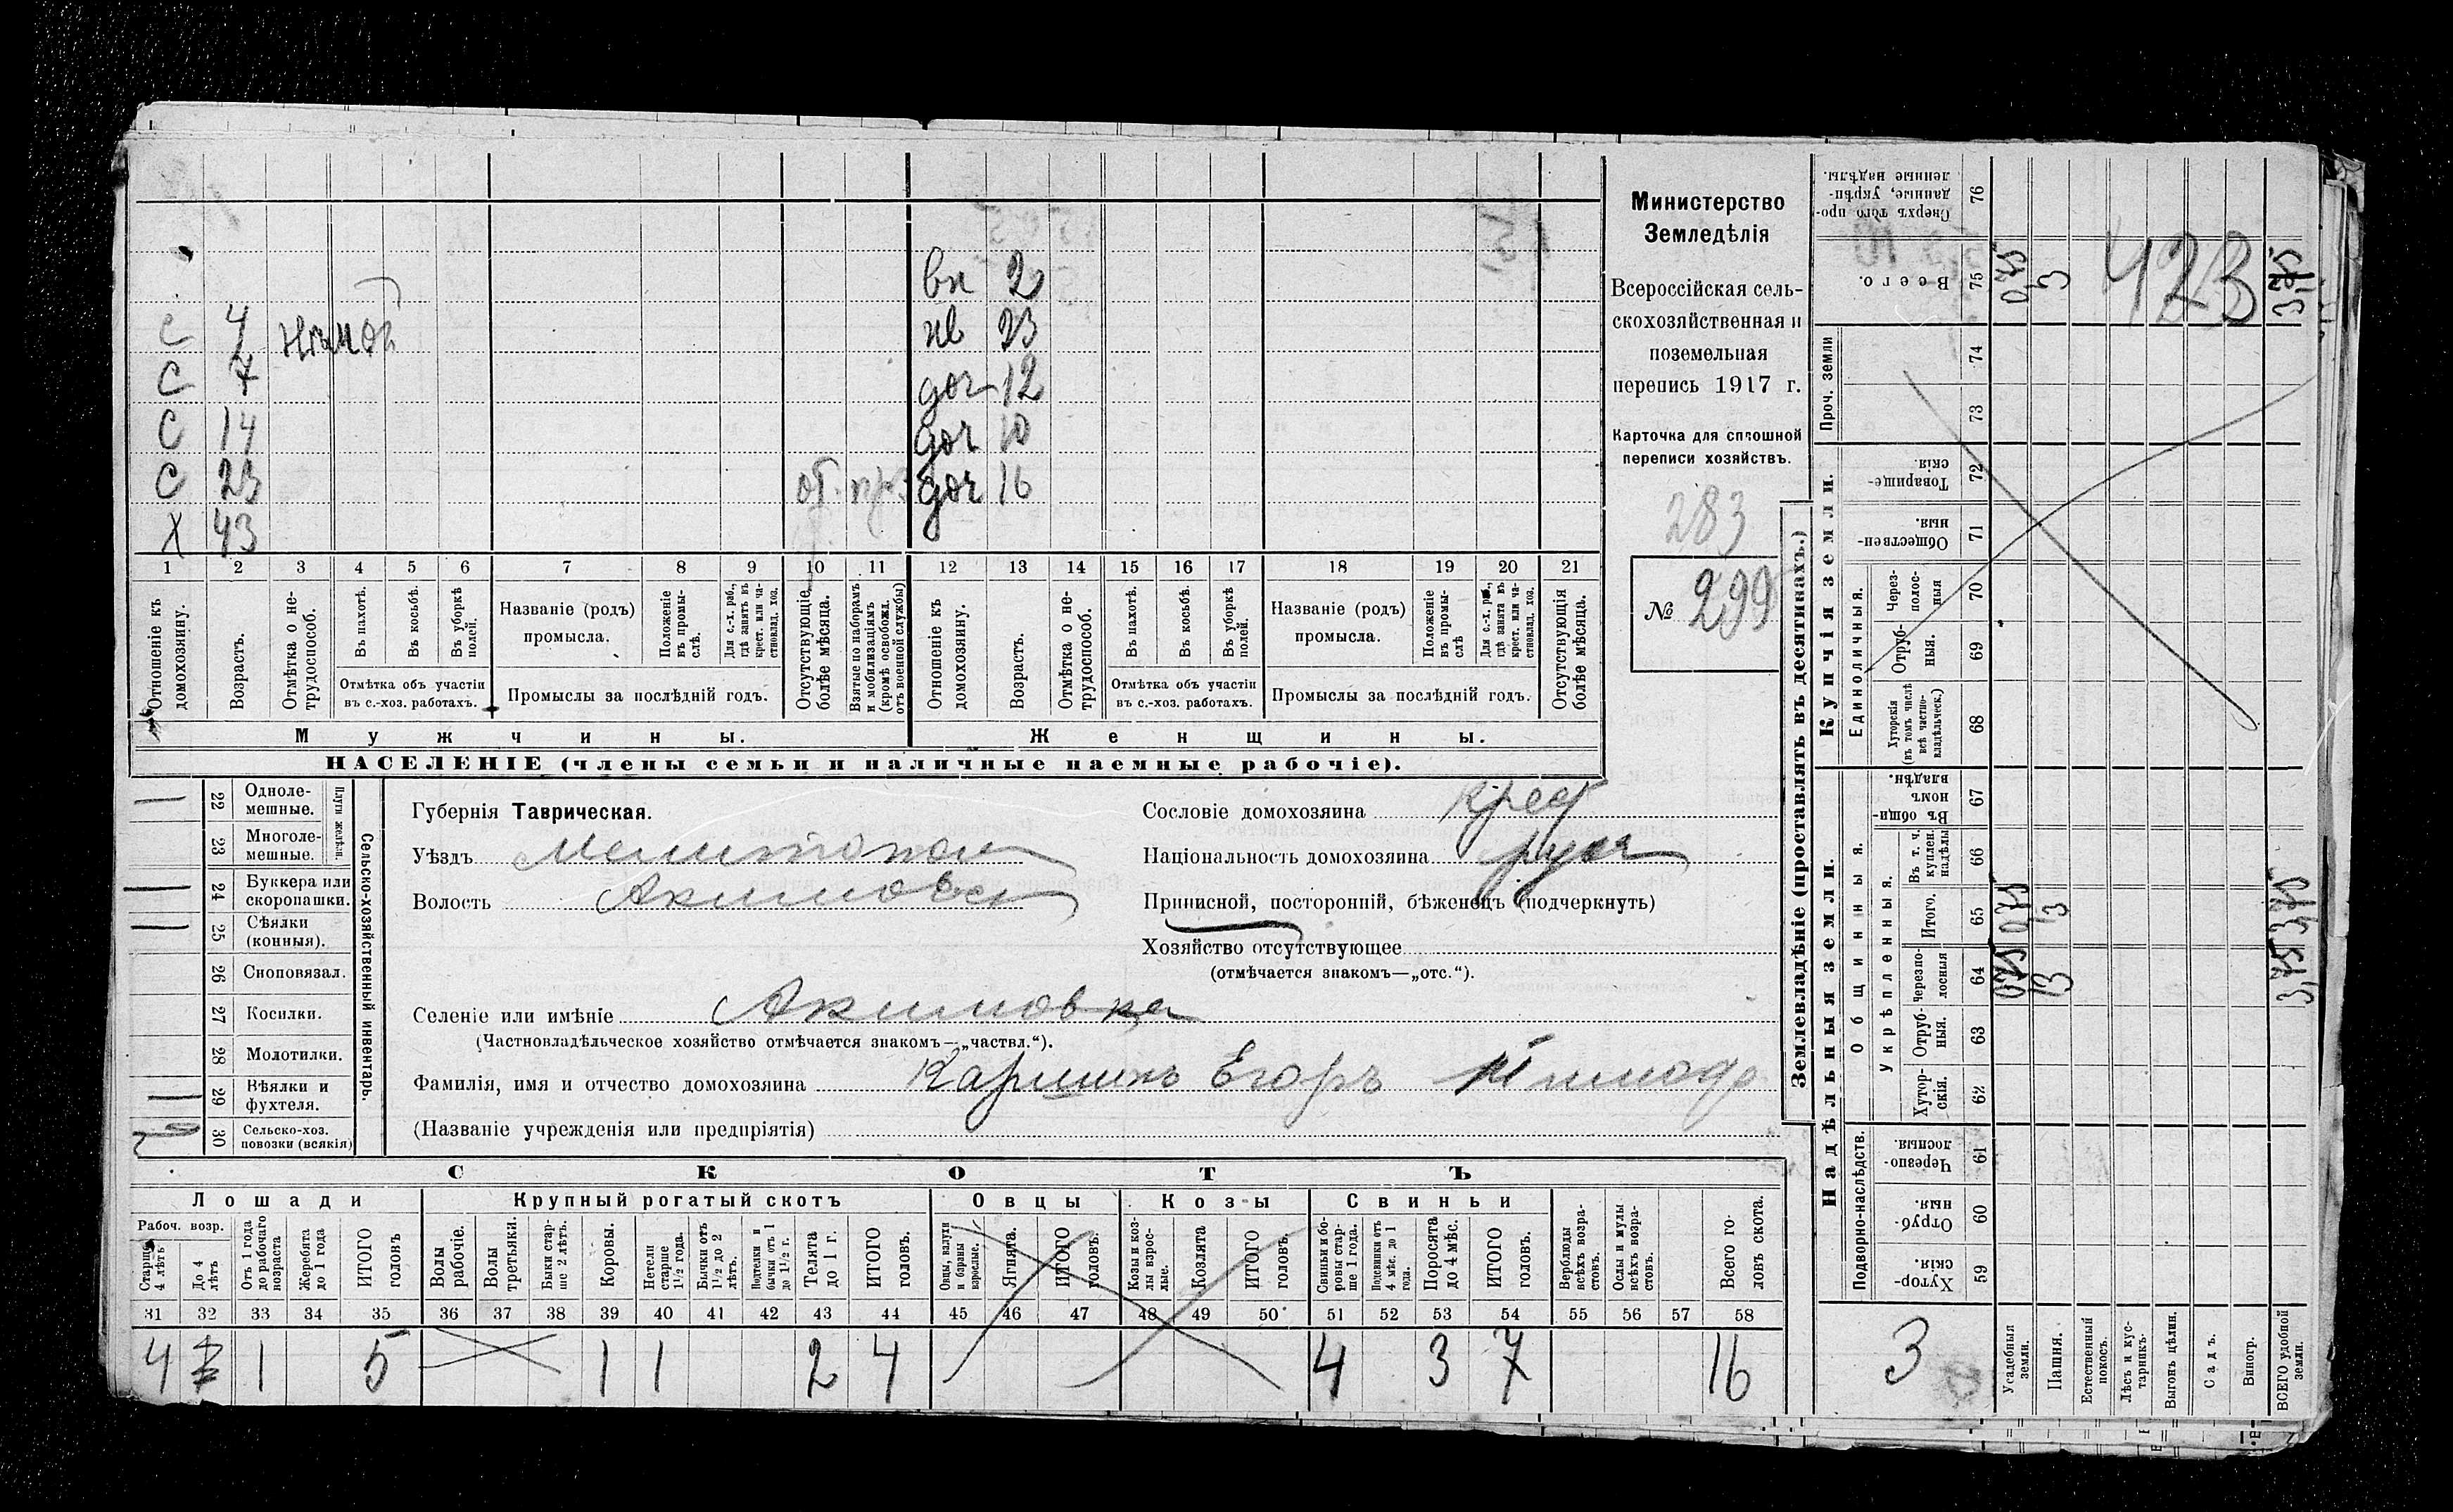 вн 2
С 4 Нѣмой нв 23
С 7 доч 12
С 14 доч 10
С 23 доч 16
Х 43
1 2 3 4 5 6 7 8 9 10 11 12 13 14 15 16 17 18 19 20 21
Отношеніе къ домохозяину.
Возрастъ.
Отмѣтка о нетрудоспособ.
Въ пахотѣ.
Въ косьбѣ.
Въ уборкѣ полей.
Отмѣтка объ участіи
въ с.-хоз. работахъ.
Названіе (родъ)
промысла.
Положеніе въ промыслѣ.
Для с.-х. раб., гдѣ занятъ въ крест. или частновлад. хоз.
Промыслы за послѣдній годъ.
Отсутствующіе болѣе мѣсяца.
Взятые по наборамъ и мобилизаціямъ (кромѣ освобожд. отъ военной службы)
Отношеніе къ домохозяину.
Возрастъ.
Отмѣтка о нетрудоспособ.
Въ пахотѣ.
Въ косьбѣ.
Въ уборкѣ полей.
Отмѣтка объ участіи
въ с.-хоз. работахъ.
Названіе (родъ)
промысла.
Положеніе въ промыслѣ
Для с.-х. раб., гдѣ занята въ крест. или частновлад. хоз.
Промыслы за послѣдній годъ.
Отсутствующія болѣе мѣсяца.
Мужчины.
Женщины.
НАСЕЛЕНІЕ (члены семьи и наличные наемные рабочіе).
Министерство
Земледѣлія
Всероссійская сель-
скохозяйственная и
поземельная
перепись 1917 г.
Карточка для сплошной
переписи хозяйствъ.
283
№ 299
22 Одноле-
мешные.
23 Многоле-
мешные.
Плуги желѣзн.
24 Буккера или
скоропашки.
25 Сѣялки
(конныя).
26 Сноповязал.
27 Косилки.
28 Молотилки.
29 Вѣялки и
фухтеля.
30 Сельско-хоз.
повозки (всякія)
Сельско-хозяйственный инвентарь.
Губернія Таврическая.
Уѣздъ Мелитопол
Волость Акимовск
Сословіе домохозяина крест
Національность домохозяина русск
Приписной, посторонній, бѣженецъ (подчеркнуть)
Хозяйство отсутствующее
(отмѣчается знакомъ—„отс.“).
Селеніе или имѣніе Акимовка
(Частновладѣльческое хозяйство отмѣчается знакомъ—„частвл.“).
Фамилія, имя и отчество домохозяина Каришнъ Егоръ
(Названіе учрежденія или предпріятія)
СКОТЪ
Лошади
Крупный рогатый скотъ
Овцы
Козы
Свиньи
Рабоч. возр.
Старше 4 лѣтъ
До 4 лѣтъ
Отъ 1 года до рабочаго возраста
Жеребята до 1 года
ИТОГО головъ
Волы рабочіе.
Волы третьяки.
Быки старше 2 лѣтъ.
Коровы.
Нетели старше 1½ года.
Бычки отъ 1½ до 2 лѣтъ.
Подтелки и бычки отъ 1 до 1½ г.
Телята до 1 г.
ИТОГО головъ.
Овцы, валухи и бараны взрослые.
Ягнята.
ИТОГО головъ.
Козы и козлы взрослые.
Козлята
ИТОГО головъ.
Свиньи и боровы старше 1 года.
Подсвинки отъ 4 мѣс. до 1 года.
Поросята до 4 мѣс.
ИТОГО головъ.
Верблюды всѣхъ возрастовъ.
Ослы и мулы всѣхъ возрастовъ.
Всего головъ скота.
31 32 33 34 35 36 37 38 39 40 41 42 43 44 45 46 47 48 49 50 51 52 53 54 55 56 57 58
4 1 5 1 1 2 4 4 3 7 16
Землевладѣніе (проставлять въ десятинахъ.)
Надѣльныя земли.
Купчія земли.
Проч. земли
Подворно-наслѣдств.
Общинныя.
Укрѣпленныя.
Единоличныя.
Сверхъ того проданные, укрѣпленные надѣлы. 76
Всего. 75 0,75 3 3,75
423
74
73
Товарищескія. 72
Общественныя. 71
Черезполосныя 70
Отрубныя. 69
Хуторскія (въ томъ числѣ всѣ частновладѣльческ.) 68
Въ общинномъ владѣн. 67
Въ т. ч. куплен. надѣлы 66
Итого. 65 0,75 3 3,75
Черезполосныя 64 0,75 3 3,75
Отрубныя. 63
Хуторскія. 62
Черезполосныя. 61
Отрубныя. 60
Хуторскія. 59
3
Усадебныя земли.
Пашня.
Естественный покосъ.
Лѣсъ и кустарникъ.
Выгонъ цѣлин.
Садъ.
Виногр.
ВСЕГО удобной земли.